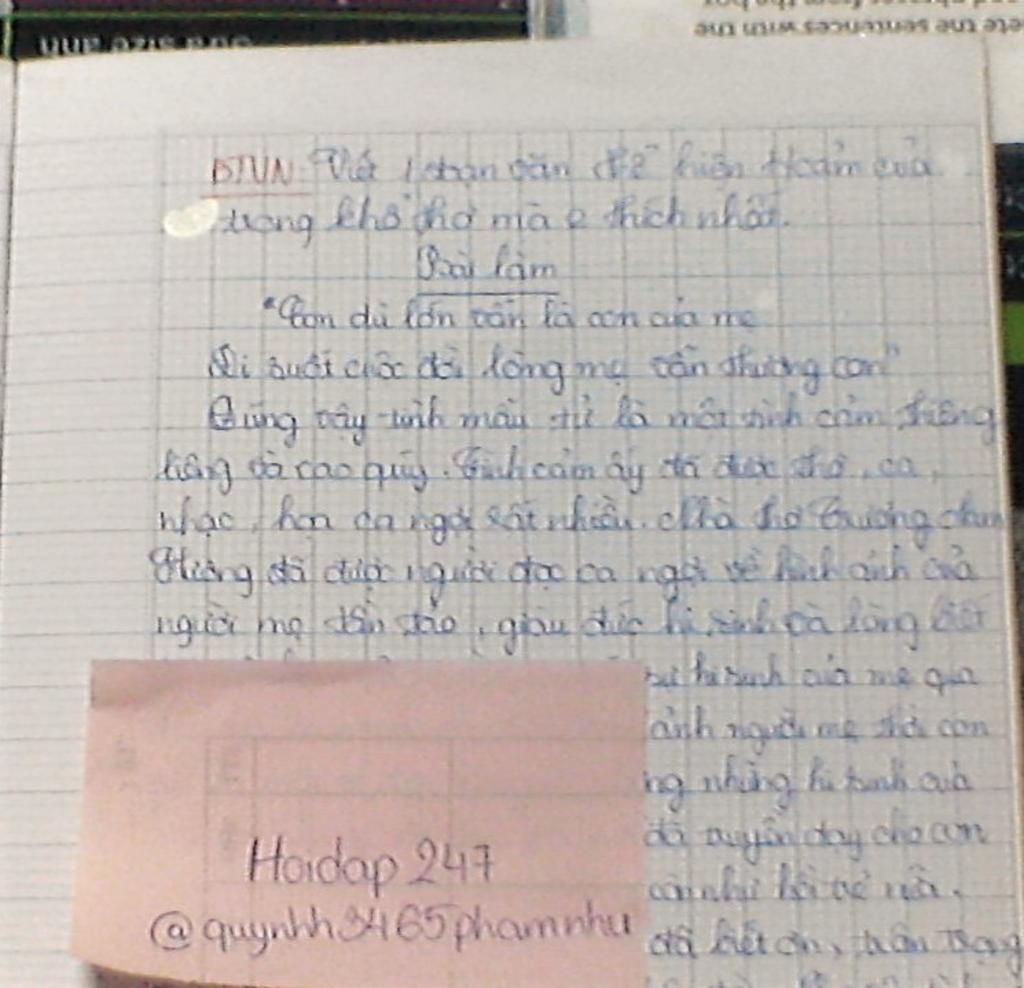 sửa size ảnh
ete the sentences with the
and phrases from the box
BTVN: Viết 1 đoạn văn thể hiện t/cảm của
trong khổ thơ mà e thích nhất.
Bài làm
"Con dù lớn vẫn là con của mẹ
Đi suốt cuộc đời lòng mẹ vẫn thương con"
Đúng vậy tình mẫu tử là một tình cảm thiêng
liêng và cao quý. Tình cảm ấy đã được thơ, ca,
nhạc, họa ca ngợi rất nhiều. Nhà thơ Trương Nam
Hương đã được người đọc ca ngợi về hình ảnh của
người mẹ tần tảo, giàu đức hi sinh và lòng biết
sự hi sinh của mẹ qua
ảnh người mẹ thời con
ng những hi sinh của
đã truyền dạy cho con
còn như hồi bé nữa.
đã biết ơn, trân trọng
Hoidap 247
@quynhh3465phamnhu